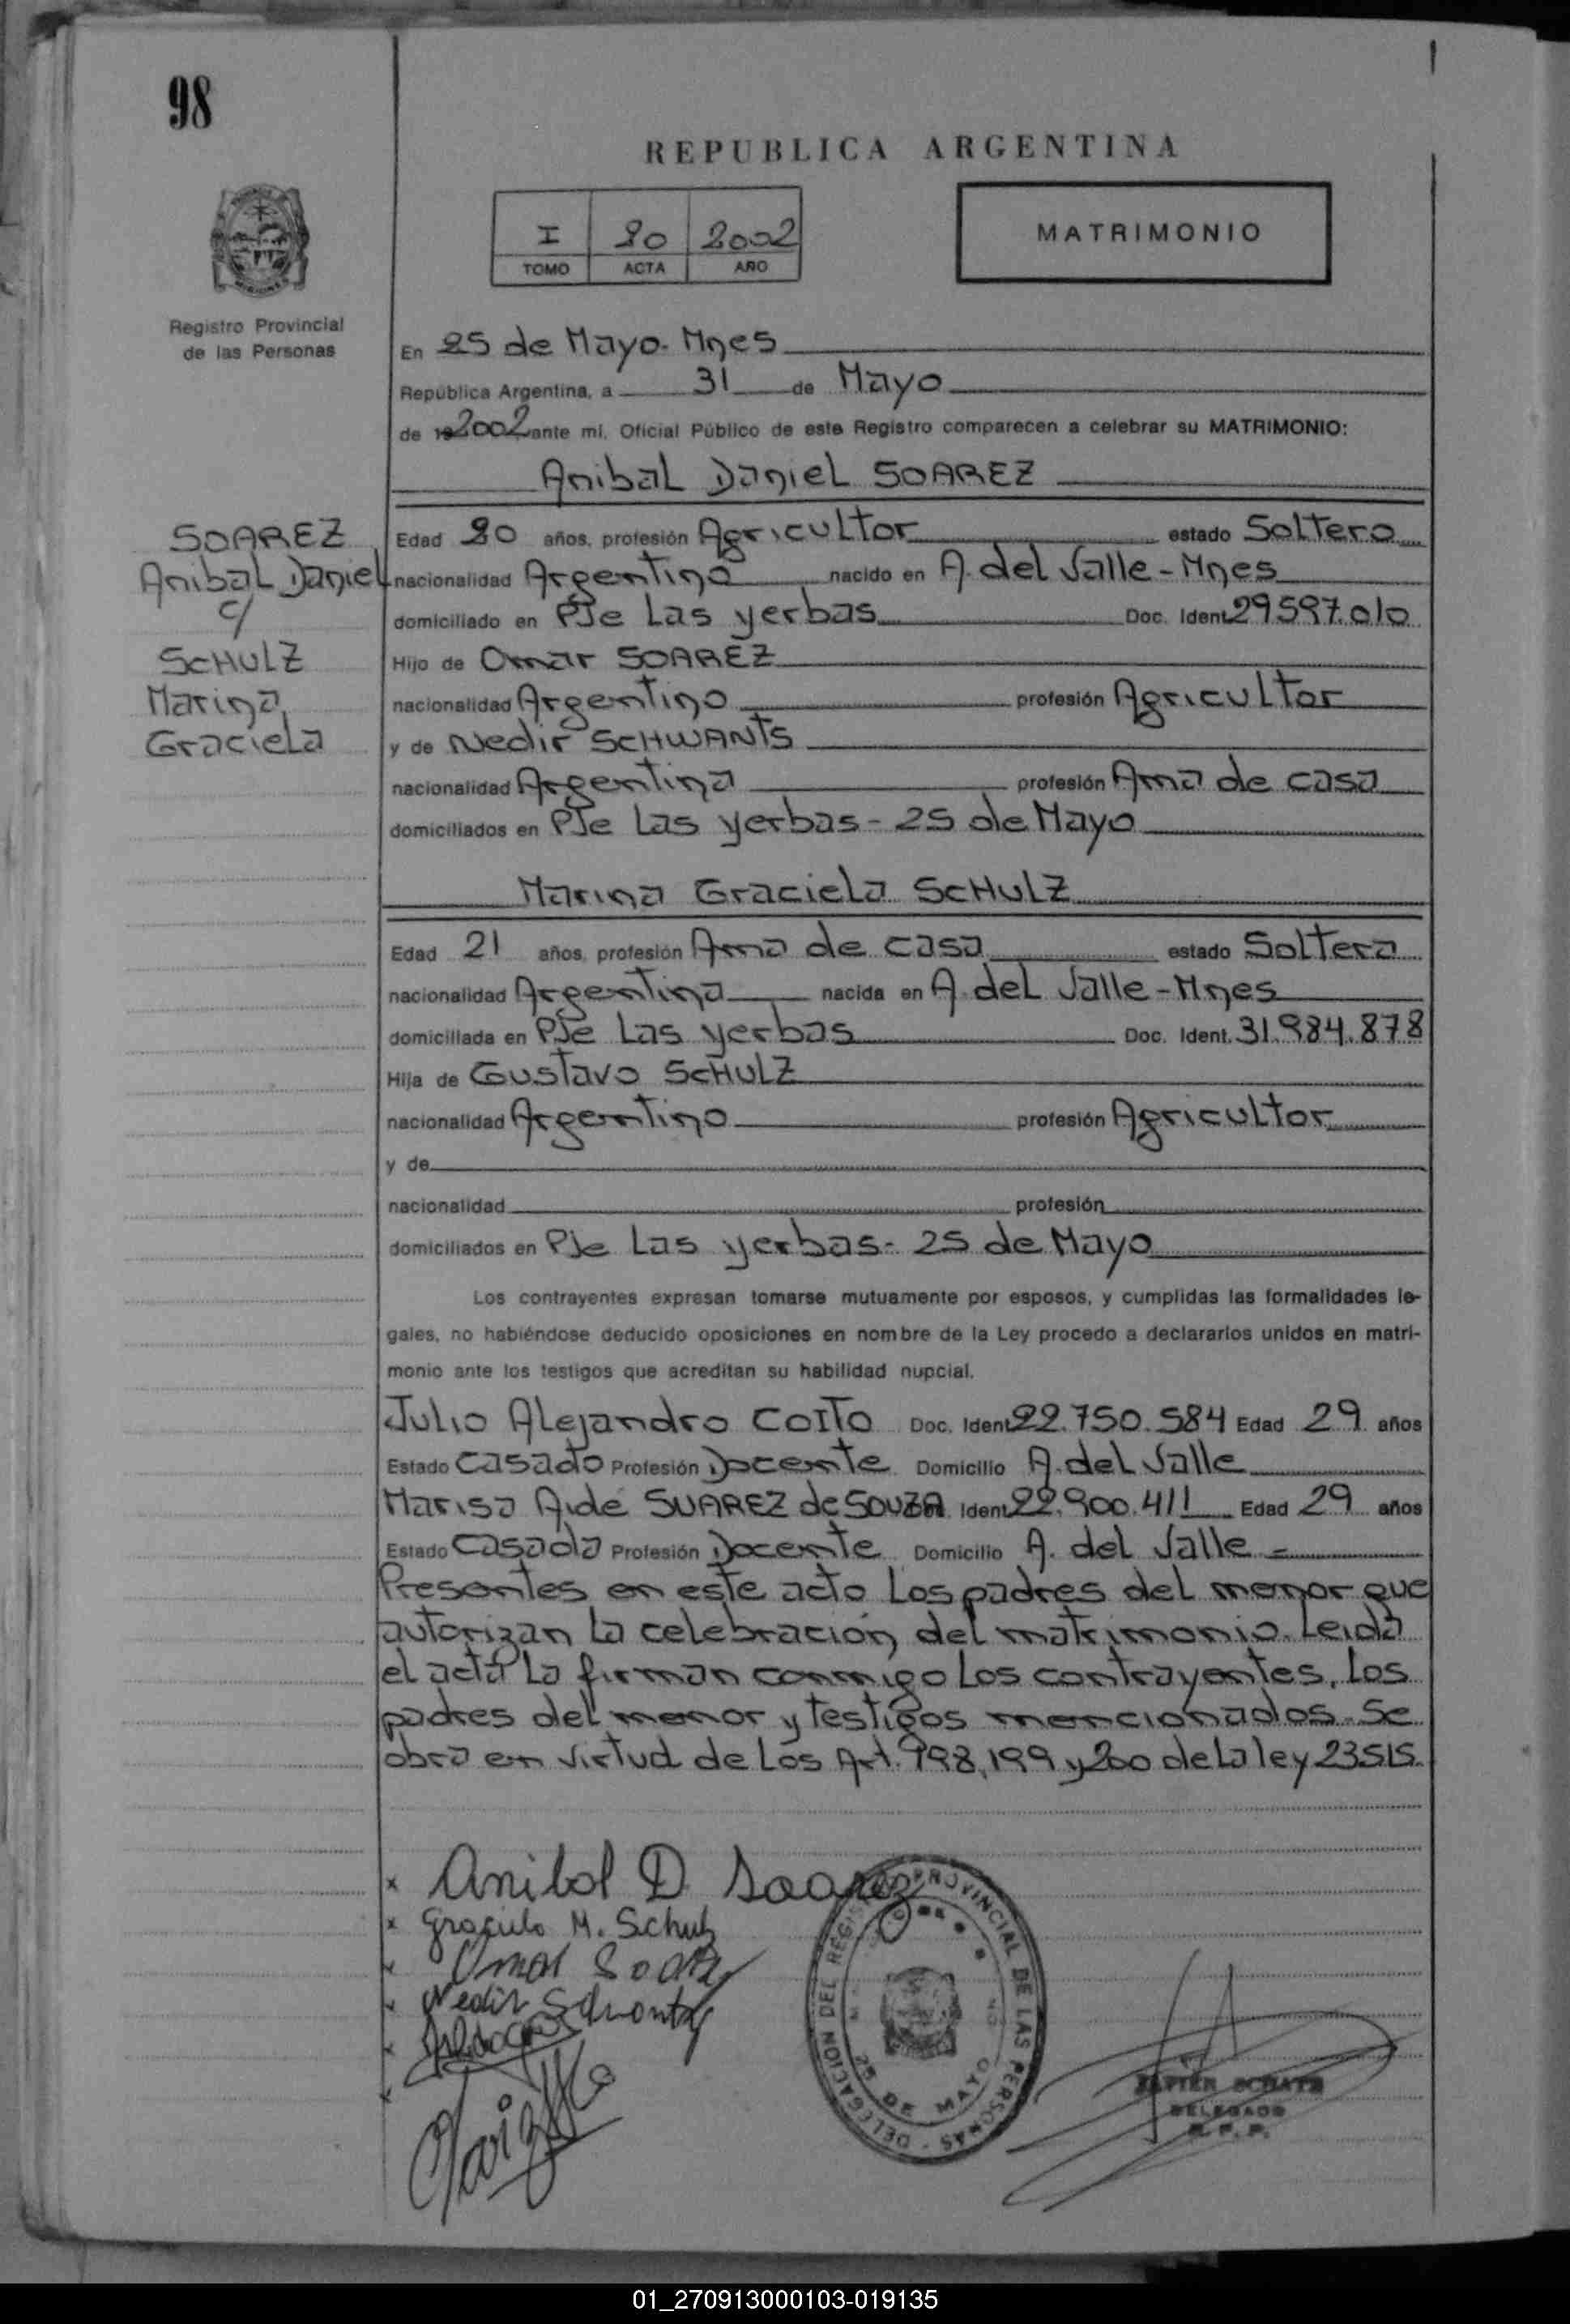 98
REPUBLICA ARGENTINA
I 20 2002
TOMO ACTA AÑO
MATRIMONIO
Registro Provincial
de las Personas
En 25 de Mayo - Mnes
República Argentina, a 31 de Mayo
de 19 2002 ante mí, Oficial Público de este Registro comparecen a celebrar su MATRIMONIO:
Anibal Daniel SOAREZ
SOAREZ
Anibal Daniel
c/
SCHULZ
Marina
Graciela
Edad 20 años, profesión Agricultor estado Soltero
nacionalidad Argentino nacido en A. del Valle - Mnes
domiciliado en PJe Las yerbas Doc. Ident. 29.597.010
Hijo de Omar SOAREZ
nacionalidad Argentino profesión Agricultor
y de Nedir SCHWANTS
nacionalidad Argentina profesión Ama de casa
domiciliados en PJe Las yerbas - 25 de Mayo
Marina Graciela SCHULZ
Edad 21 años, profesión Ama de casa estado Soltera
nacionalidad Argentina nacida en A. del Valle - Mnes
domiciliada en PJe Las yerbas Doc. Ident. 31.984.878
Hija de Gustavo SCHULZ
nacionalidad Argentino profesión Agricultor
y de
nacionalidad profesión
domiciliados en PJe Las yerbas - 25 de Mayo
Los contrayentes expresan tomarse mutuamente por esposos, y cumplidas las formalidades le-
gales, no habiéndose deducido oposiciones en nombre de la Ley procedo a declararlos unidos en matri-
monio ante los testigos que acreditan su habilidad nupcial.
Julio Alejandro COITO Doc. Ident. 22.750.584 Edad 29 años
Estado Casado Profesión Docente Domicilio A. del Valle
Marisa Aidé SUAREZ de SOUZA Ident. 22.900.411 Edad 29 años
Estado Casada Profesión Docente Domicilio A. del Valle =
Presentes en este acto Los padres del menor que
autorizan La celebración del matrimonio. Leida
el acta La firman conmigo Los contrayentes, Los
padres del menor y testigos mencionados. Se
obra en virtud de Los Art. 198, 199 y 200 de La ley 23515.
x Anibal D. Soarez
x Graciela M. Schulz
x Omar Soarez
x Nedir Schwants
x
x
DELEGACION DEL REGISTRO PROVINCIAL DE LAS PERSONAS
25 DE MAYO
DELEGADO
R. P. P.
01_270913000103-019135